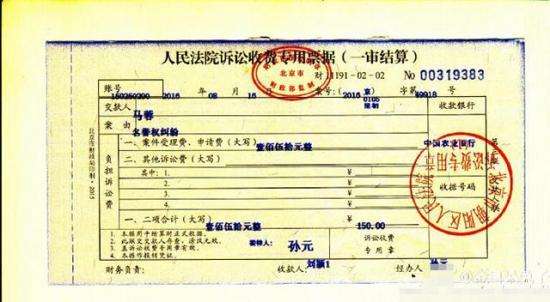 人民法院诉讼收费专用票据(一审结算)
北京市
财政部监制
财 1191-02-02 No 00319383
账号 2016 年 08 月 16 日 案号(2016)京0105民初 字第 49918 号
交款人 马蓉 收款银行
案由 名誉权纠纷
中国农业银行
负担诉讼费
一、案件受理费、申请费(大写) 壹佰伍拾元整 ¥
二、其他诉讼费(大写) ¥
其中:1. ¥
2. ¥
3. ¥
4. ¥
收据号码
一、二项合计(大写) 壹佰伍拾元整 ¥ 150.00
1. 本据用于结算时正式收据。
2. 此联交交款人存查,涂改无效。
3. 盖诉讼费专用章有效。
4. 本据作报销凭证。
委托人: 孙元
诉讼收费
专用章
财务负责: 收款人: 刘颖1 经办人:
北京市财政局印制·2015
北京市朝阳区人民法院
诉讼费专用章